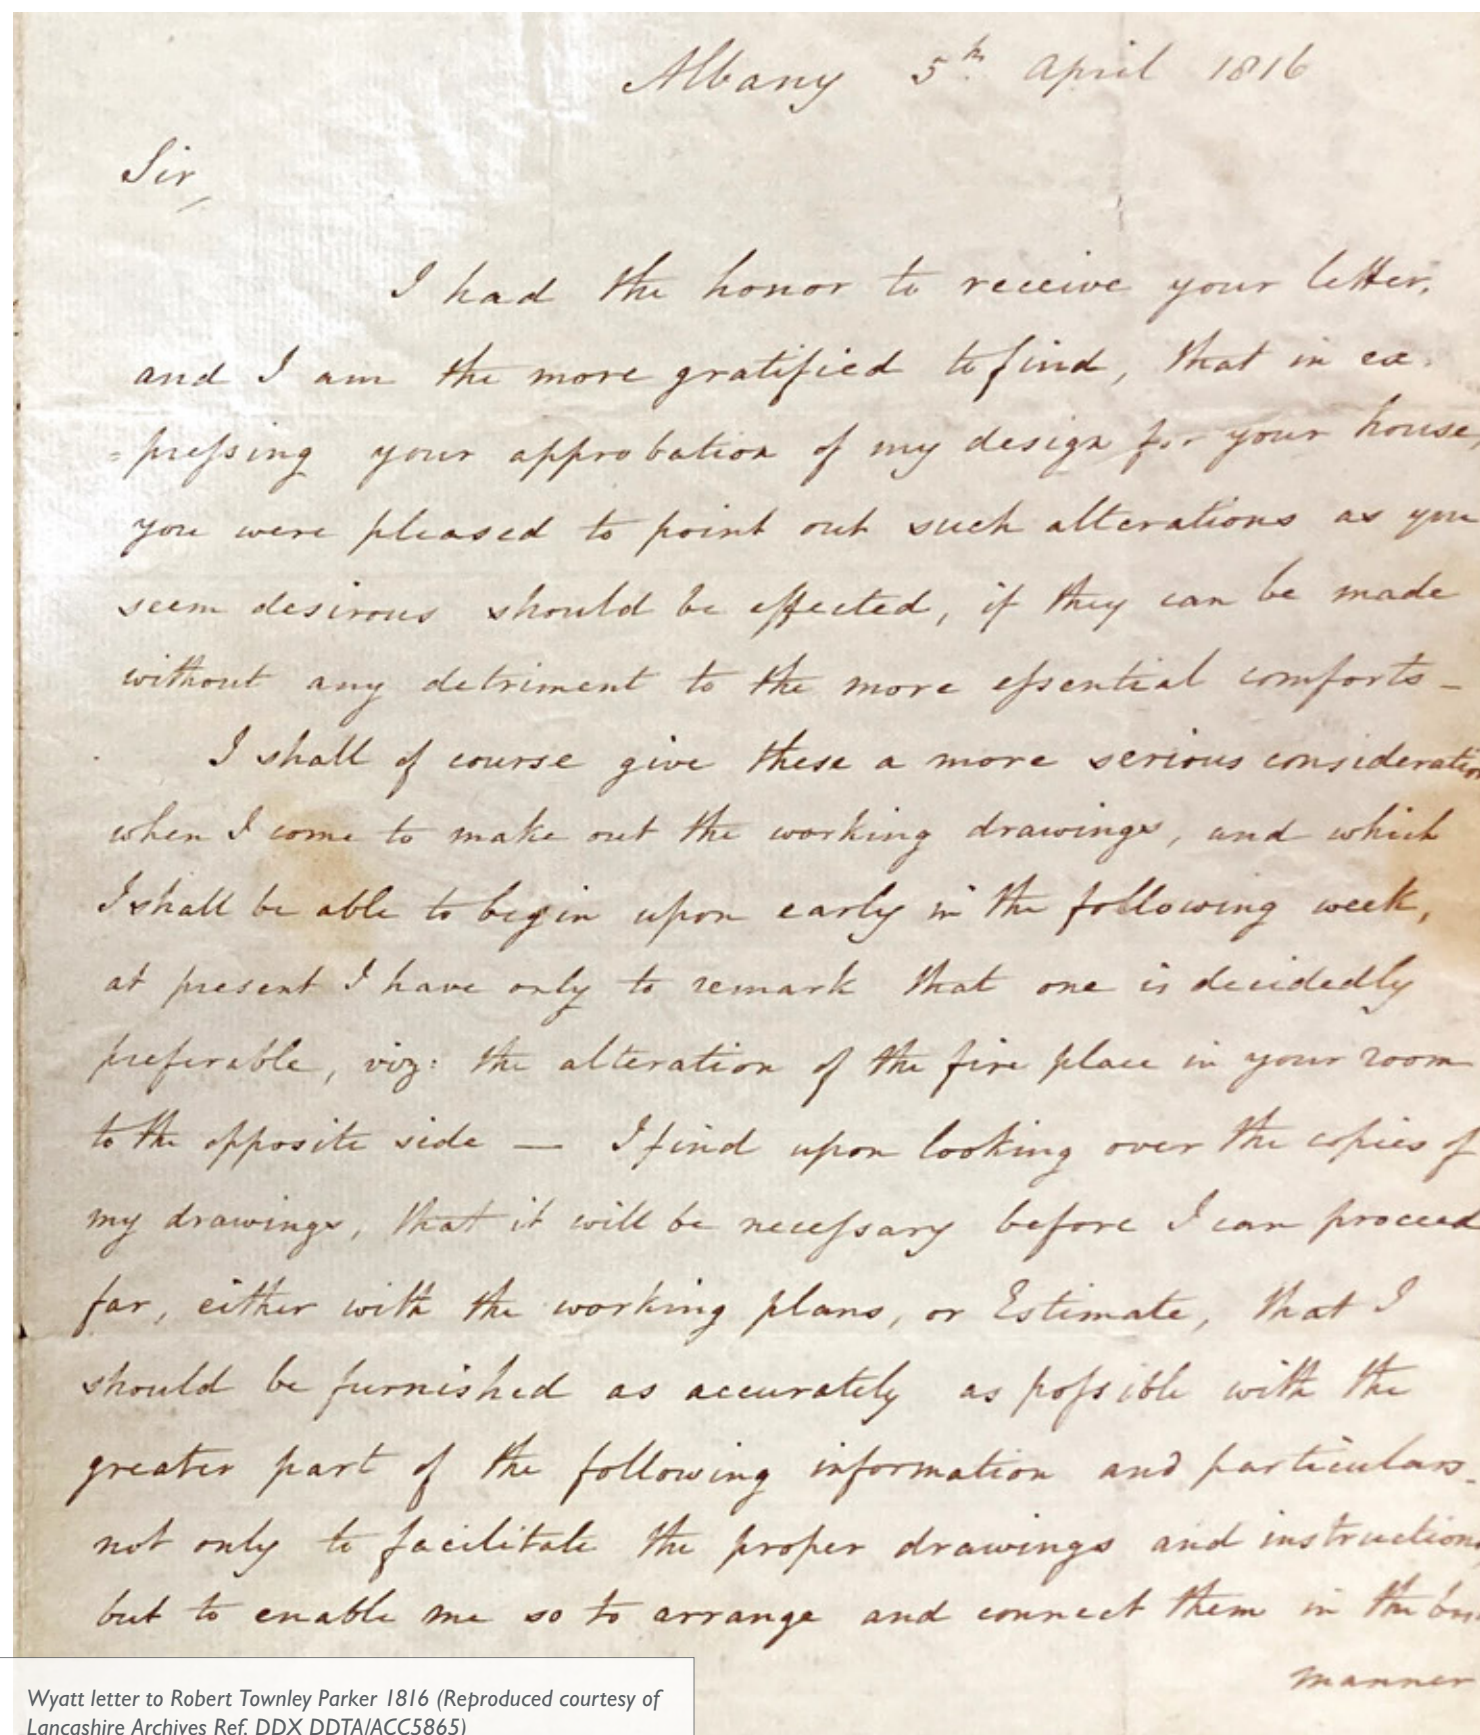 Albany 5th. April 1816
Sir,
I had the honor to receive your letter,
and I am the more gratified to find, that in ex:
=preſsing your approbation of my design for your house,
you were pleased to point out such alterations as you
seem desirous should be effected, if they can be made
without any detriment to the more eſsential comforts –
I shall of course give these a more serious consideration
when I come to make out the working drawings, and which
I shall be able to begin upon early in the following week,
at present I have only to remark that one is decidedly
preferable, viz: the alteration of the fire place in your room
to the opposite side — I find upon looking over the copies of
my drawings, that it will be neceſsary before I can proceed
far, either with the working plans, or Estimate, that I
should be furnished as accurately as poſsible with the
greater part of the following information and particulars –
not only to facilitate the proper drawings and instructions
but to enable me so to arrange and connect them in the
manner
Wyatt letter to Robert Townley Parker 1816 (Reproduced courtesy of
Lancashire Archives Ref. DDX DDTA/ACC5865)